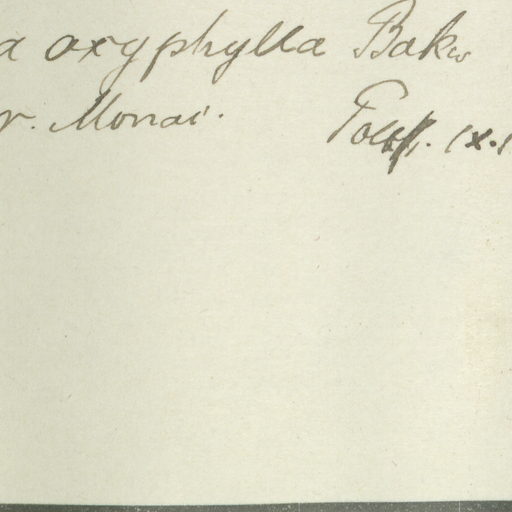 a oxyphylla Baker
r. Monai. Fol. IX.1